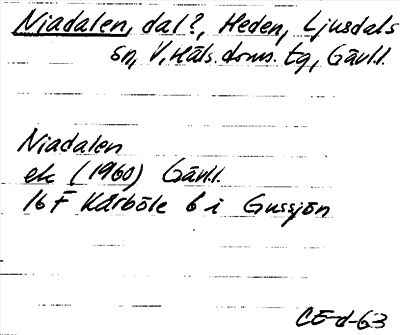 Niadalen, dal?, Heden, Ljusdals
sn, V. Häls. doms. tg, Gävl.l.
Niadalen
ek (1960) Gävl.l.
16 F Kårböle 6 i Gussjön
CE-d-63